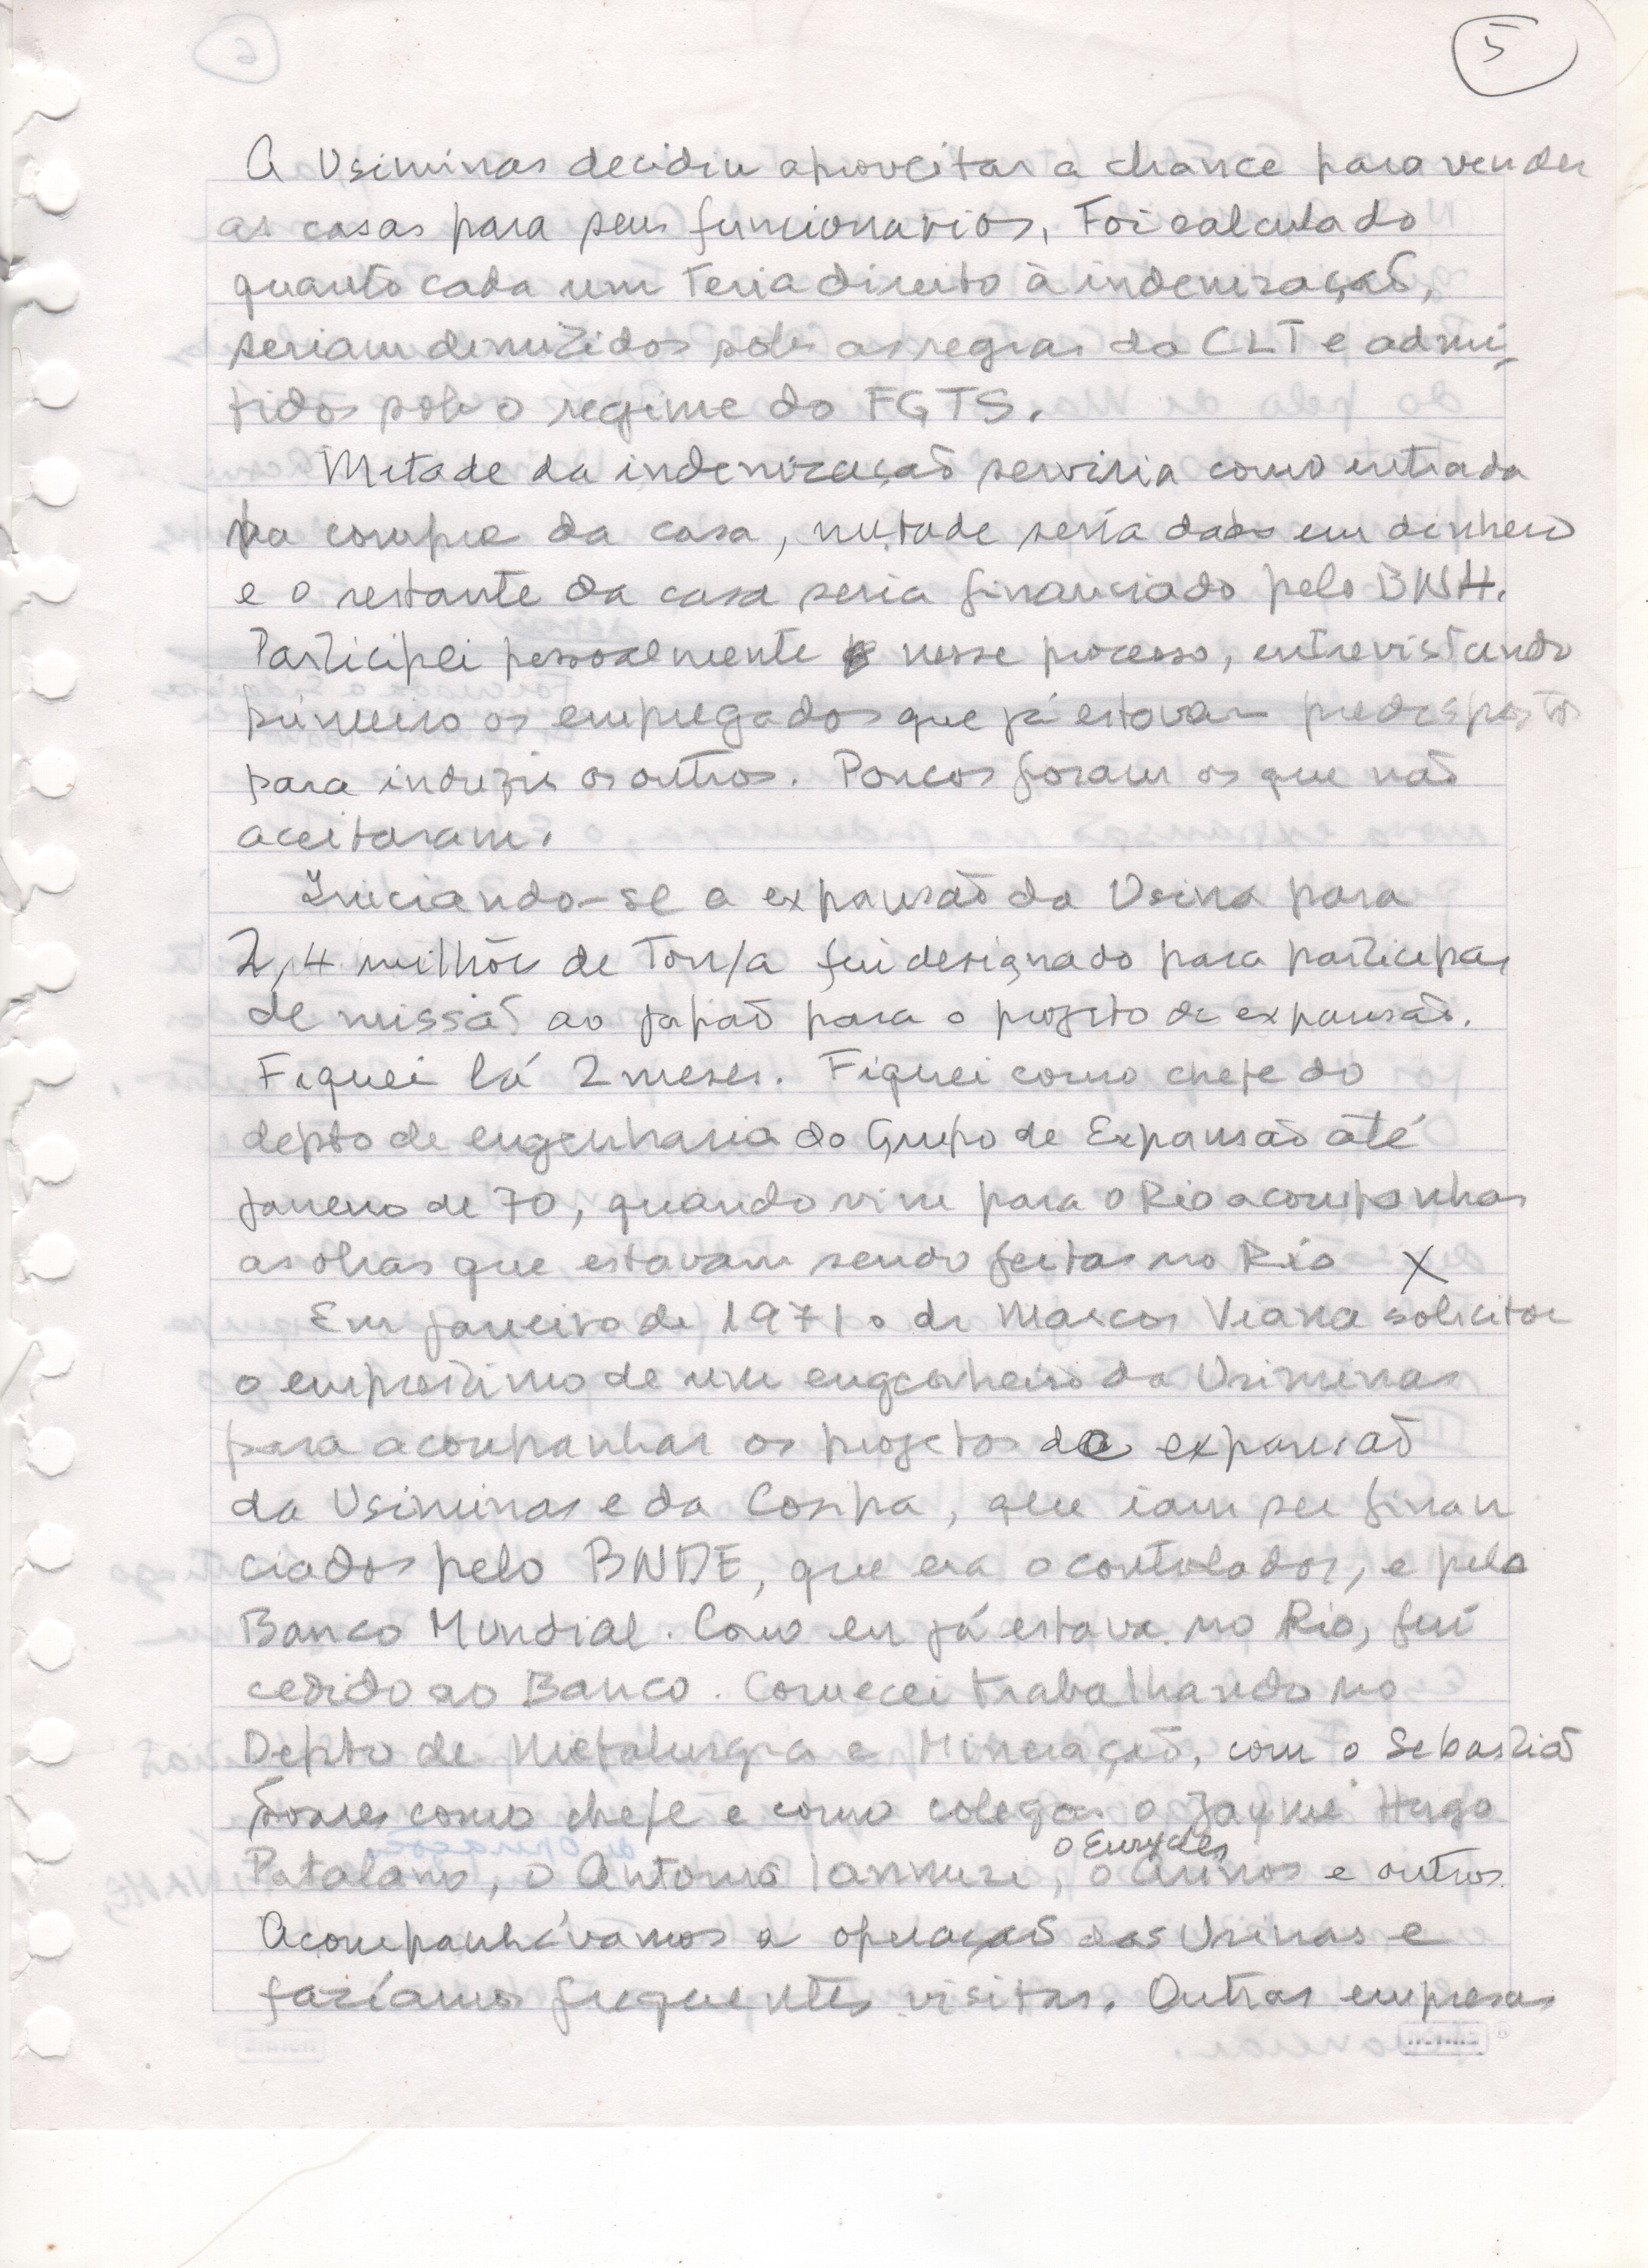 5
A Usiminas decidiu aproveitar a chance para vender
as casas para seus funcionarios. Foi calculado
quanto cada um teria direito à indenização,
seriam demitidos sob as regras da CLT e admi-
tidos sob o regime do FGTS.
Metade da indenização serviria como entrada
na compra da casa, metade seria dada em dinheiro
e o restante da casa seria financiado pelo BNH.
Participei pessoalmente nesse processo, entrevistando
primeiro os empregados que já estavam predispostos
para induzir os outros. Poucos foram os que não
aceitaram.
Iniciando-se a expansão da Usina para
2,4 milhões de Ton/a fui designado para participar
de missão ao Japão para o projeto de expansão.
Fiquei lá 2 meses. Fiquei como chefe do
depto de engenharia do Grupo de Expansão até
janeiro de 70, quando vim para o Rio acompanhar
as obras que estavam sendo feitas no Rio X
Em janeiro de 1971 o dr Marcos Viana solicitou
o emprestimo de um engenheiro da Usiminas
para acompanhar os projetos de expansão
da Usiminas e da Cosipa, que iam ser finan
ciados pelo BNDE, que era o controlador, e pelo
Banco Mundial. Como eu já estava no Rio, fui
cedido ao Banco. Comecei trabalhando no
Depto de Metalurgia e Mineração, com o Sebastião
Soares como chefe e como colegas o Jayme Hugo
o Eurycles
Patalano, o Antonio Iannuzi, o Arinos e outros.
Acompanhávamos a operação das Usinas e
faziamos frequentes visitas. Outras empresas